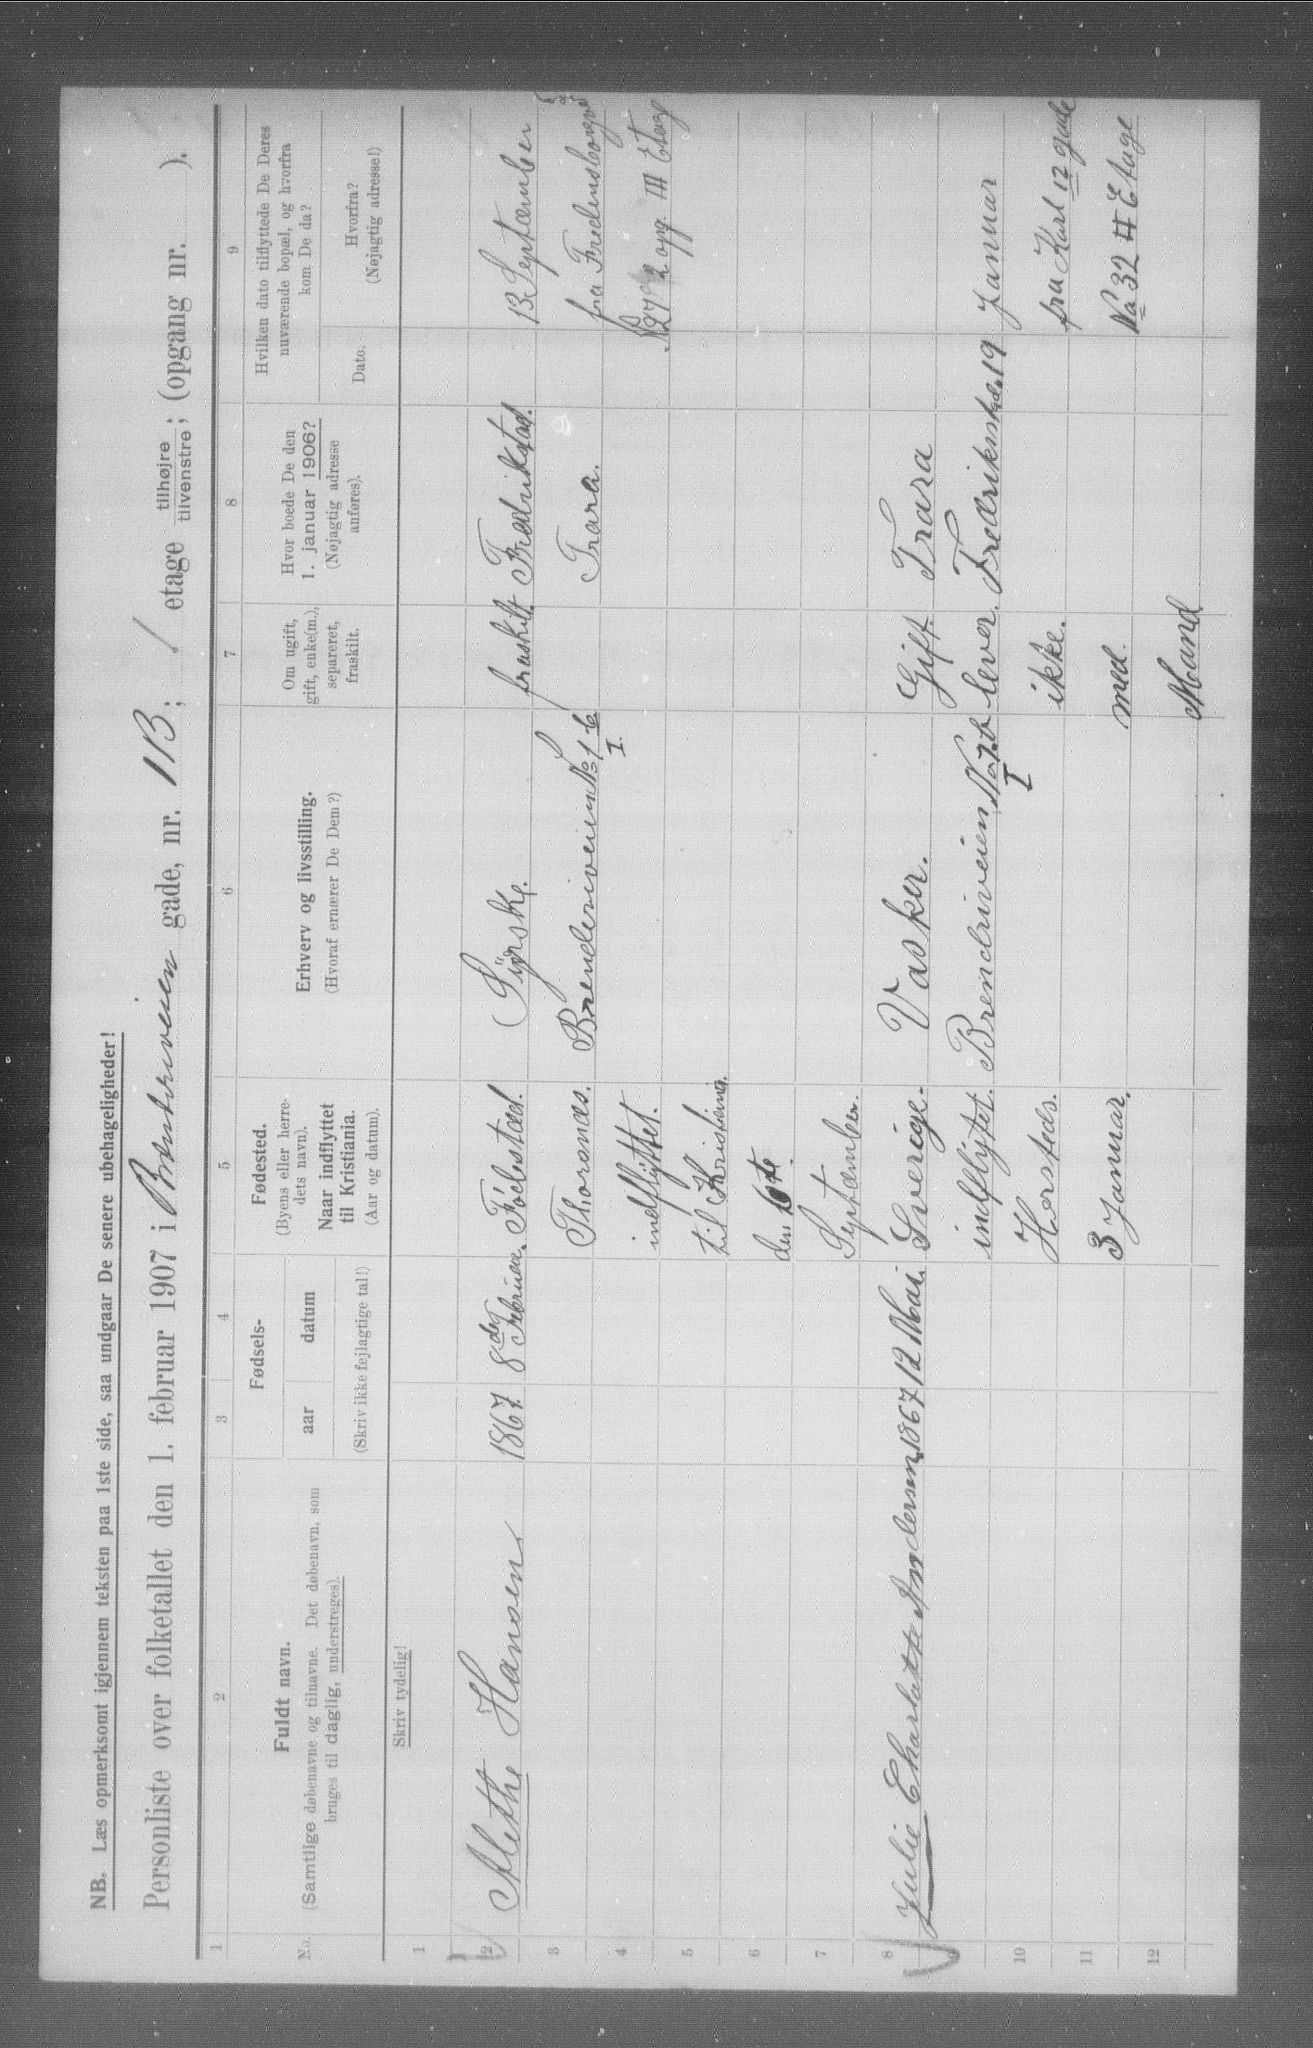 NB. Læs opmerksomt igjennem teksten paa 1ste side, saa undgaar De senere ubehageligheder!
Personliste over folketallet den 1. februar 1907 i gade, nr. 1B; / etage tilhøjre tilvenstre; (opgang nr. ).
1 2 3 4 5 6 7 8 9
No.
Fuldt navn.
(Samtlige døbenavne og tilnavne. Det døbenavn, som
bruges til daglig, understreges).
Fødsels-
aar datum
(Skriv ikke fejlagtige tal!)
Fødested.
(Byens eller herre-
dets navn).
Naar indflyttet
til Kristiania.
(Aar og datum).
Erhverv og livsstilling.
(Hvoraf ernærer De Dem?)
Om ugift,
gift, enke(m.),
separeret,
fraskilt.
Hvor boede De den
1. januar 1906?
(Nøjagtig adresse
anføres).
Hvilken dato tilflyttede De Deres
nuværende bopæl, og hvorfra
kom De da?
Dato.
Hvorfra?
(Nøjagtig adresse!)
Skriv tydelig!
1
2 Alethe Hansen 1867 8de Februar. Fólestad. Syerske. fraskilt. Fredrikstad. 13 Septæmber
3 Thorsnæs. No 1 b Trara. fra
I
4 indflyttet. 27 2 opg. III Etag
5 til Kristiania.
6 den 6te
7 Septæmber.
8 Julie Charlotte Andersen 1867 12 Mai. Sverige. Vasker. Gift. Trara
9 indflytet. Brendriveien No 1.b lever. 19 Januar
I
10 Hersteds. ikke. fra Karl 12 gade
11 3 Januar. med. No 32 II Etage
12 Mand